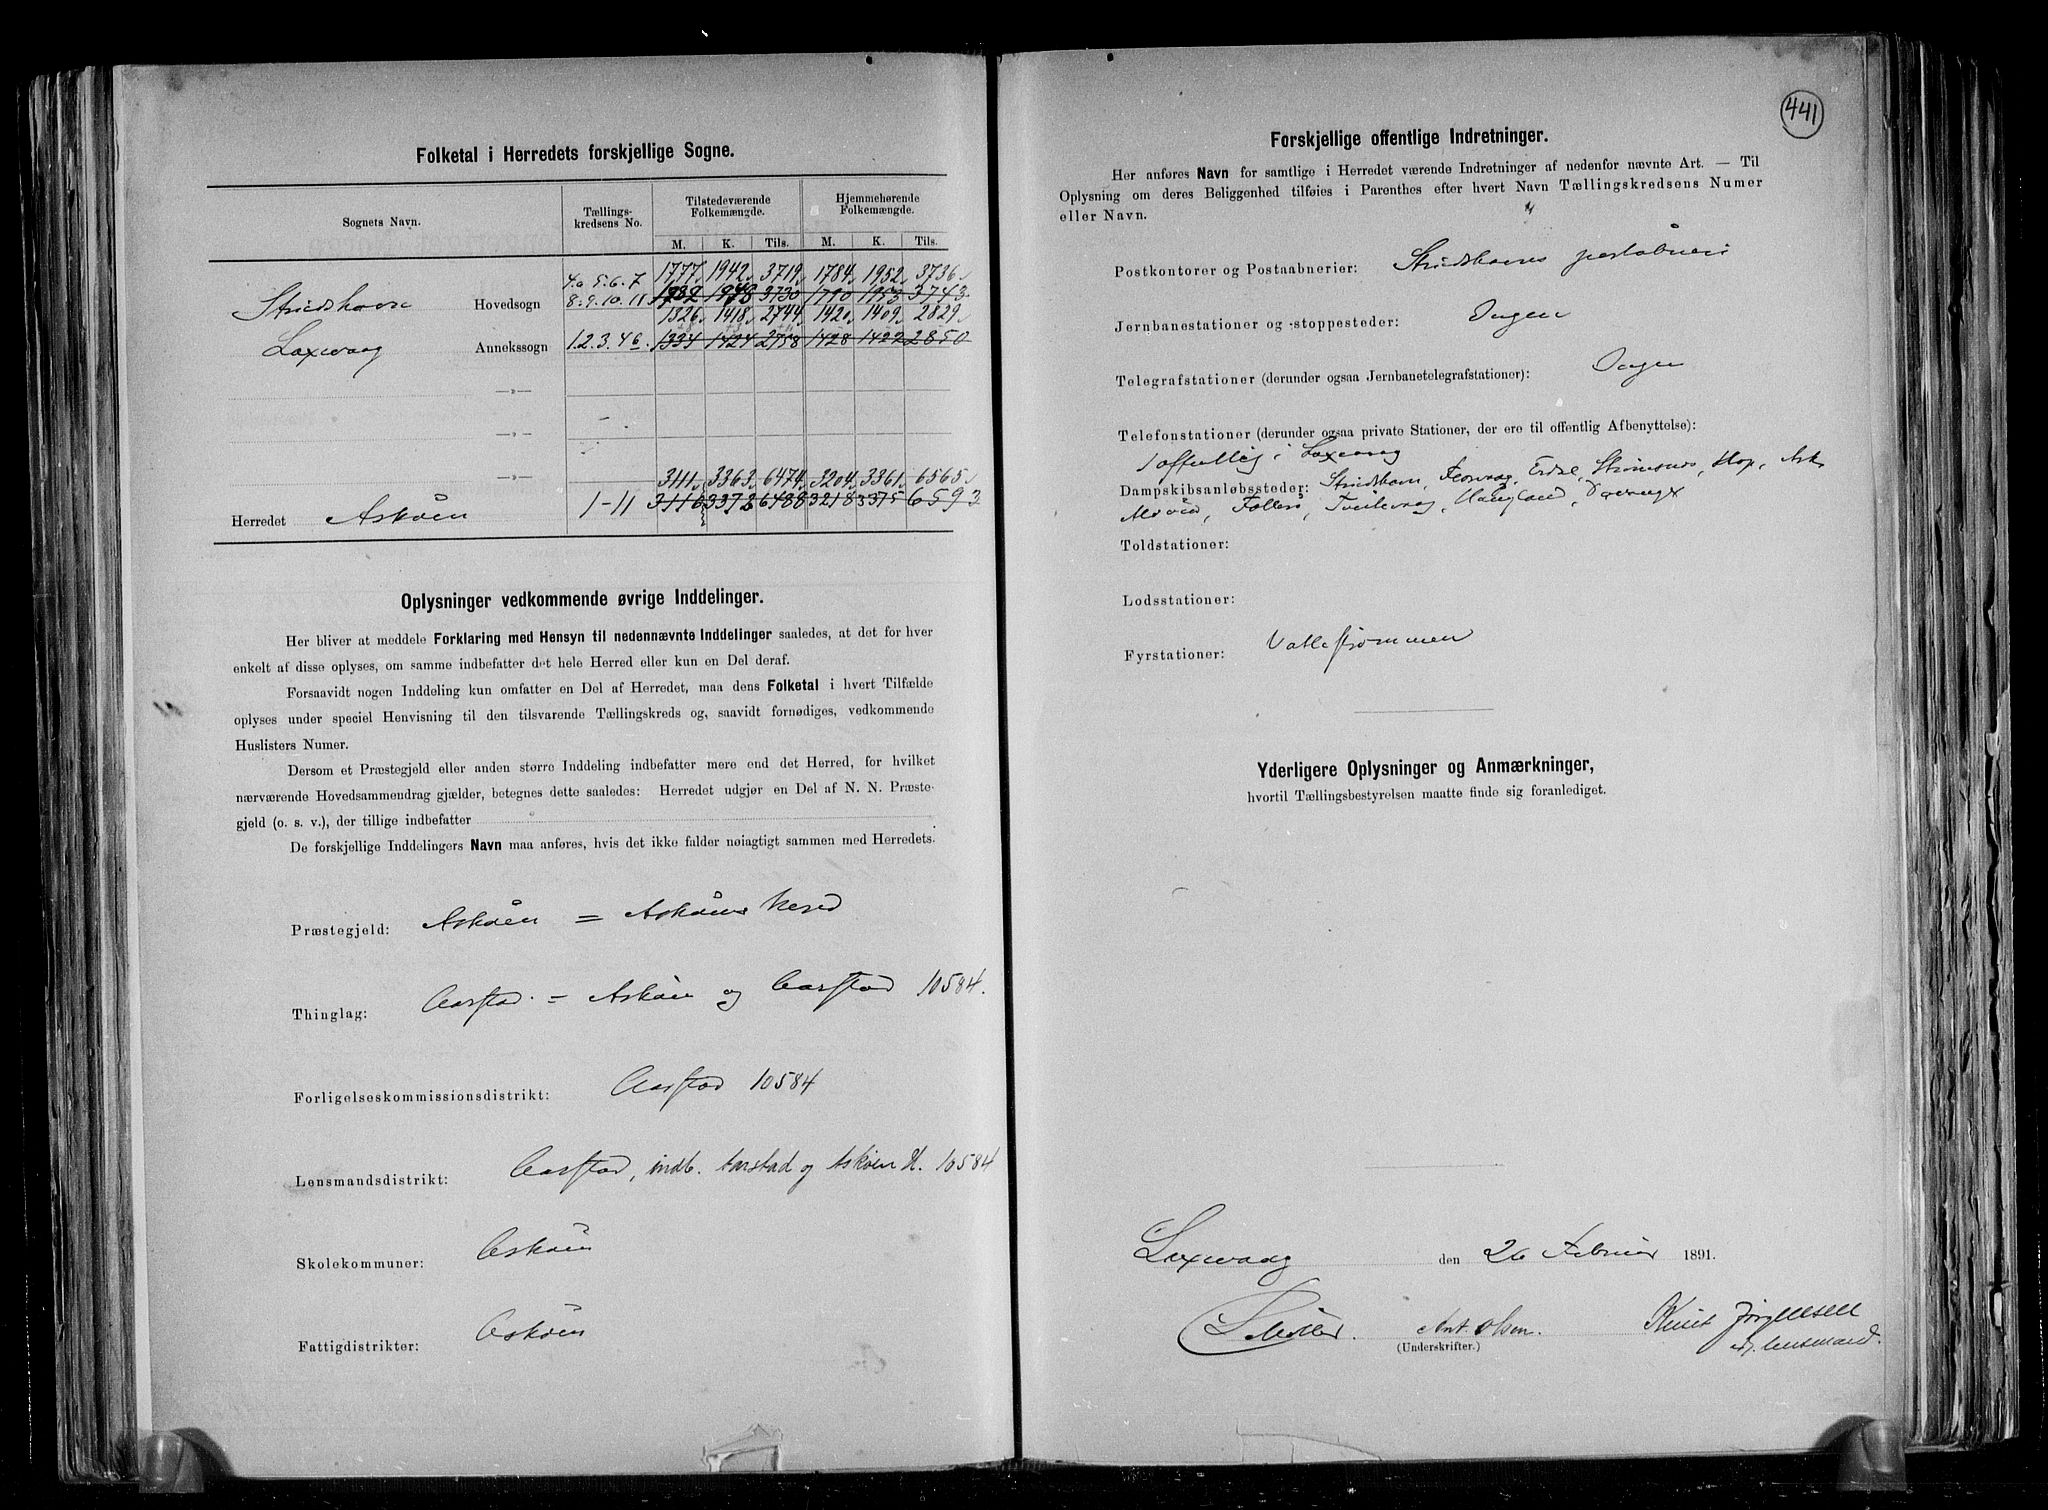 Folketal i Herredets forskjellige Sogne.
Sognets Navn. Tællings-kredsens No. Tilstedeværende Folkemængde. Hjemmehørende Folkemængde.
M. K. Tils. M. K. Tils.
4a 5. 6. 7 1777 1942 3719 1784 1952 3736
Strudshavn Hovedsogn 8. 9. 10. 11 1948 3730 1790 1953 3743
1326 1418 2744 1420 1409 2829
Laxevaag Annekssogn 1. 2. 3. 4b. 1334 1424 2758 1428 1422 2850
—„—
—„—
—„— 3111 3363 6474 3204 3361 6565
Herredet Askøen 1-11 3116 3372 6488 3218 3375 6593
Oplysninger vedkommende øvrige Inddelinger.
Her bliver at meddele Forklaring med Hensyn til nedennævnte Inddelinger saaledes, at det for hver
enkelt af disse oplyses, om samme indbefatter det hele Herred eller kun en Del deraf.
Forsaavidt nogen Inddeling kun omfatter en Del af Herredet, maa dens Folketal i hvert Tilfælde
oplyses under speciel Henvisning til den tilsvarende Tællingskreds og, saavidt fornødiges, vedkommende
Huslisters Numer.
Dersom et Præstegjeld eller anden større Inddeling indbefatter mere end det Herred, for hvilket
nærværende Hovedsammendrag gjælder, betegnes dette saaledes: Herredet udgjør en Del af N. N. Præste-
gjeld (o. s. v.), der tillige indbefatter
De forskjellige Inddelingers Navn maa anføres, hvis det ikke falder nøiagtigt sammen med Herredets.
Præstegjeld: Askøen = Askøens Hered
Thinglag: Aarstad = Askøen og Aarstad 10584.
Forligelseskommissionsdistrikt: Aarstad 10584
Lensmandsdistrikt: Aarstad, indb. Aarstad og Askøen H. 10584
Skolekommuner: Askøen
Fattigdistrikter: Askøen
441
Forskjellige offentlige Indretninger.
Her anføres Navn for samtlige i Herredet værende Indretninger af nedenfor nævnte Art. — Til
Oplysning om deres Beliggenhed tilføies i Parenthes efter hvert Navn Tællingskredsens Numer
eller Navn.
Postkontorer og Postaabnerier: Strudshavns postaabneri
Jernbanestationer og -stoppesteder: Ingen
Telegrafstationer (derunder ogsaa Jernbanetelegrafstationer): Ingen
Telefonstationer (derunder ogsaa private Stationer, der ere til offentlig Afbenyttelse):
1 offentlig i Laxevaag
Dampskibsanløbssteder: Strudshavn, Florvaag, Erdal, Strømsnes, Hop, Ask
Alvøen, Follesø, Tveitevaag, Haugland,
Toldstationer:
Lodsstationer:
Fyrstationer: Vatlestrømmen
Yderligere Oplysninger og Anmærkninger,
hvortil Tællingsbestyrelsen maatte finde sig foranlediget.
Laxevaag den 26 Februar 1891.
Ant. Olsen. Knut Jørgensen
(Underskrifter.) lensmand.